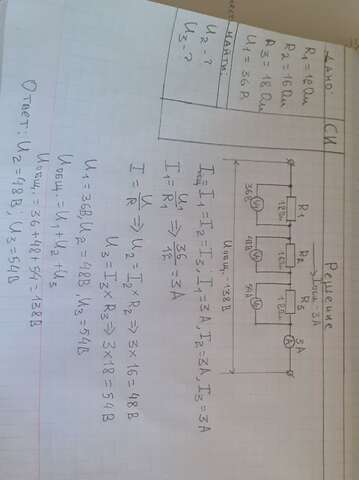 Дано
R₁ = 12 Ом
R₂ = 16 Ом
R₃ = 18 Ом
U₁ = 36 В
Найти:
U₂ - ?
U₃ - ?
СИ
Решение
Iобщ. = 3А
R₁
12 Ом
36В
V₁
R₂
16 Ом
48В
V₂
R₃
18 Ом
54В
V₃
3А
A
Uобщ. = 138В
Iобщ = I₁ = I₂ = I₃, I₁ = 3А, I₂ = 3А, I₃ = 3А
I₁ = U₁/R₁ ⇒ 36/12 = 3А
I = U/R ⇒ U₂ = I₂ × R₂ ⇒ 3 × 16 = 48В
U₃ = I₃ × R₃ ⇒ 3 × 18 = 54В
U₁ = 36В, U₂ = 48В, U₃ = 54В
Uобщ. = U₁ + U₂ + U₃
Uобщ. = 36 + 48 + 54 = 138В
Ответ: U₂ = 48В; U₃ = 54В